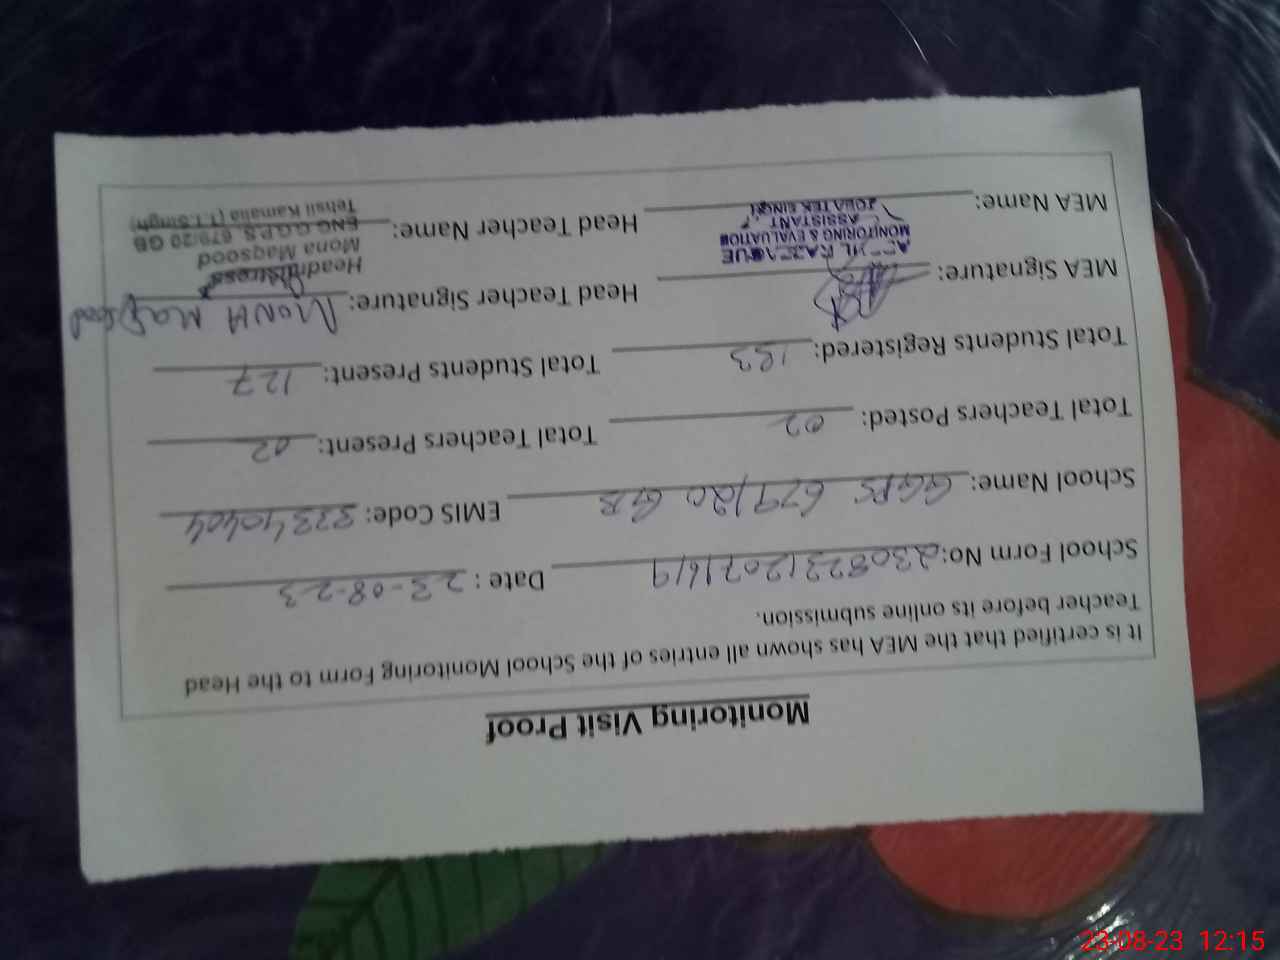 Monitoring Visit Proof
It is certified that the MEA has shown all entries of the School Monitoring Form to the Head
Teacher before its online submission.
School Form No: 23082312071619 Date : 23-08-23
School Name: GGPS 679/20 GB EMIS Code: 33340404
Total Teachers Posted: 02 Total Teachers Present: 02
Total Students Registered: 183 Total Students Present: 127
MEA Signature: Head Teacher Signature: MONA Maqsood
Headmistress
Mona Maqsood
MONITORING & EVALUATION
ASSISTANT
TOBA TEK SINGH
MEA Name: Head Teacher Name: ENG G.G.P.S. 679/20 GB
Tehsil Kamalia (T.T.Singh)
23-08-23 12:15